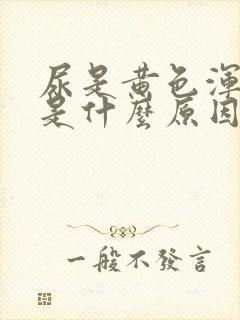 尿是黄色渾
是什麼原因
一般不發言